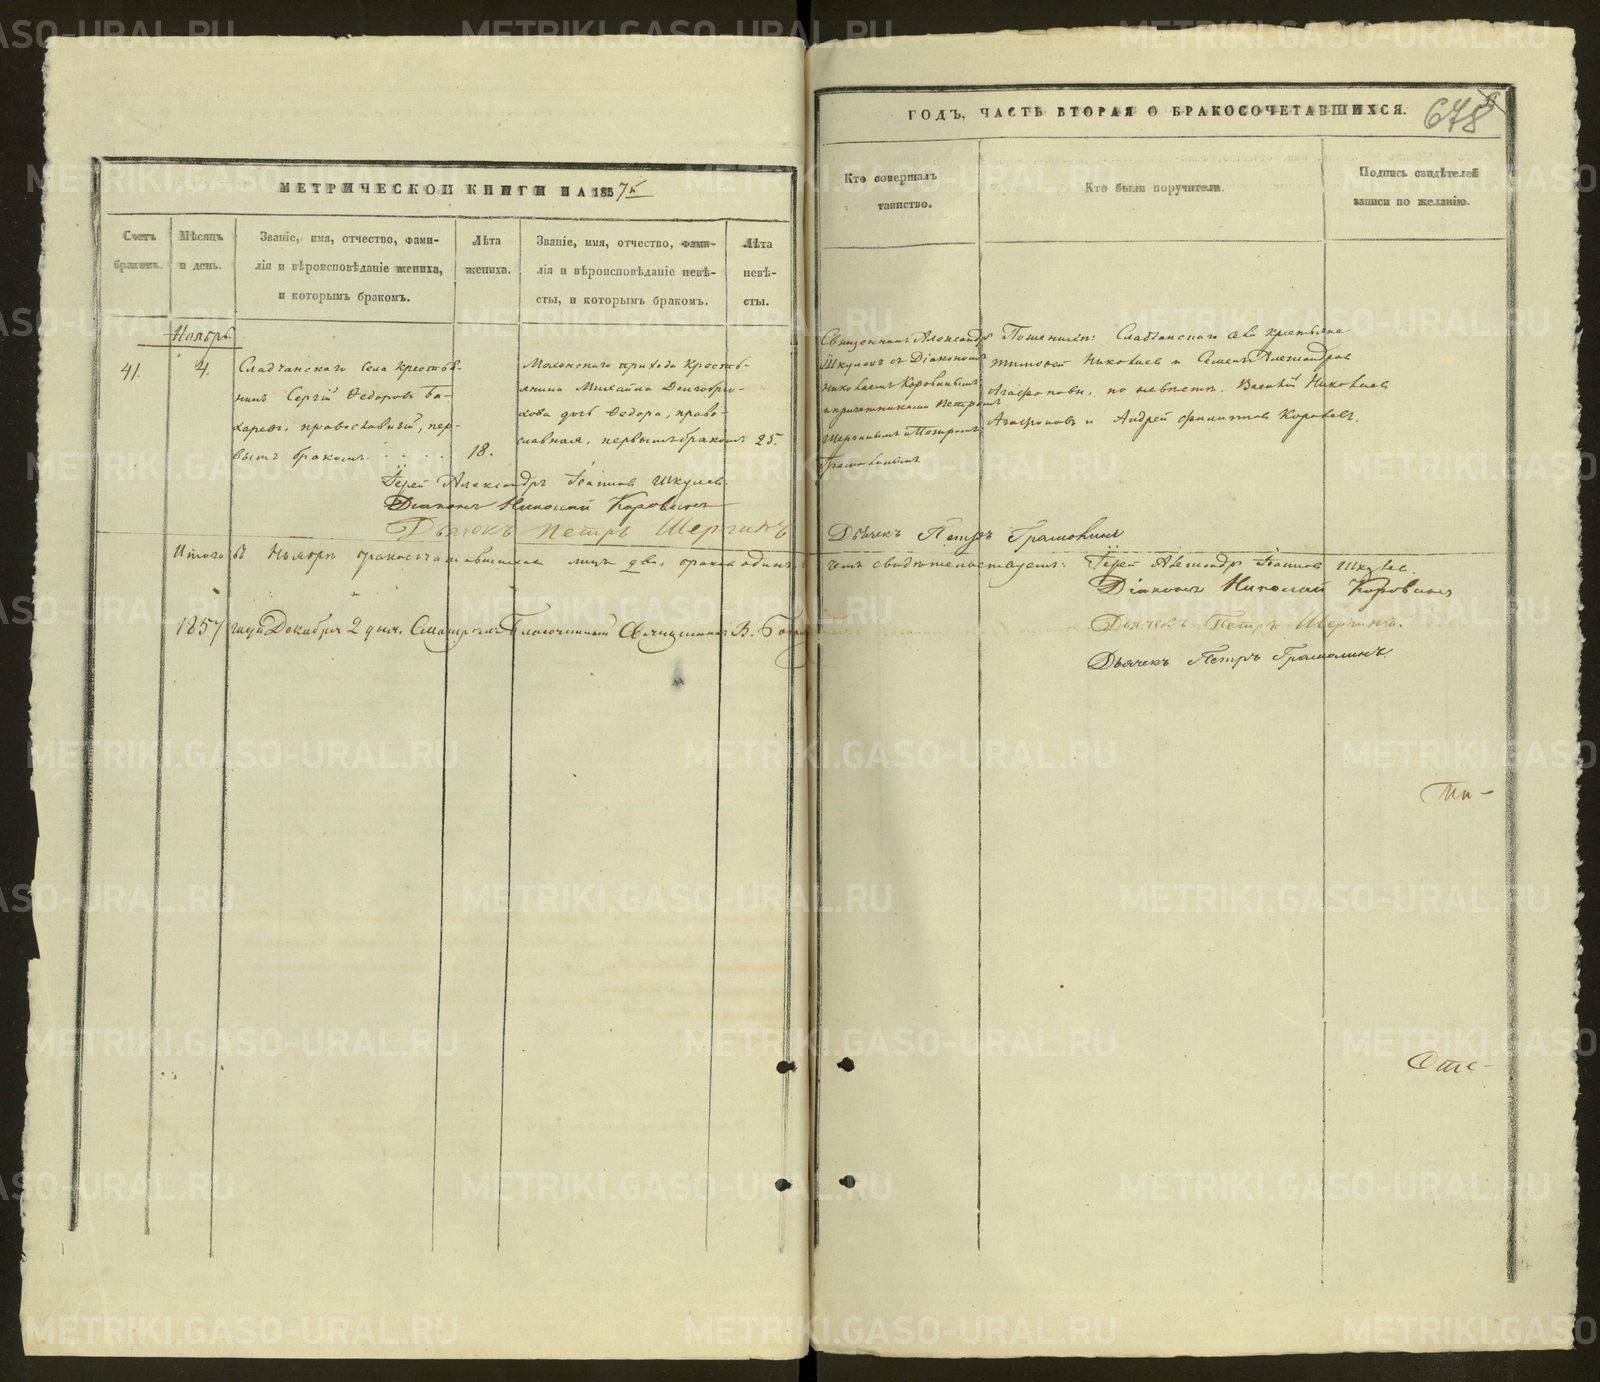 МЕТРИЧЕСКОЙ КНИГИ НА 1857й
Счетъ браковъ.
Мѣсяцъ и день.
Званіе, имя, отчество, фами-
лія и вѣроисповѣданіе жениха,
и которымъ бракомъ.
Лѣта
жениха.
Званіе, имя, отчество, фами-
лія и вѣроисповѣданіе невѣ-
сты, и которымъ бракомъ.
Лѣта
невѣ-
сты.
Ноябрь.
41.
4.
Сладчанскаго села крестья-
нинъ Сергій Ѳедоровъ Ба-
харевъ, православный, пер-
вымъ бракомъ.
18.
прихода кресть-
янина Михаила
дочь Ѳедора, право-
славная, первымъ бракомъ
25.
Іерей Александръ Іоанновъ Шкулевъ.
Діаконъ Николай Коровинъ
Дьячекъ Петръ Шергинъ
Итого въ Ноябрѣ бракосочетавшихся лицъ два, браковъ одинъ
1857 года Декабря 2 дня. Смотрелъ Благочинный Священникъ В.
ГОДЪ, ЧАСТЬ ВТОРАЯ О БРАКОСОЧЕТАВШИХСЯ.
678
Кто совершалъ
таинство.
Кто были поручители.
Подпись свидѣтелей
записи по желанію.
Священникъ Александръ
Шкулевъ съ Діакономъ
Николаемъ Коровинымъ
и причетниками Петромъ
Шергинымъ и Петромъ
Грамолинымъ
По женихѣ: Сладчанскаго села крестьяне
Тимоѳей Николаевъ и Семенъ Александровъ
Агафоновы, по невѣстѣ: Василій Николаевъ
Агафоновъ и Андрей Филиповъ Коровевъ.
Дьячекъ Петръ Грамолинъ
чемъ свидѣтельствуемъ:
Іерей Александръ Іоанновъ Шкулевъ.
Діаконъ Николай Коровинъ
Дьячекъ Петръ Шергинъ.
Дьячекъ Петръ Грамолинъ.
Ми-
Оте-
METRIKI.GASO-URAL.RU